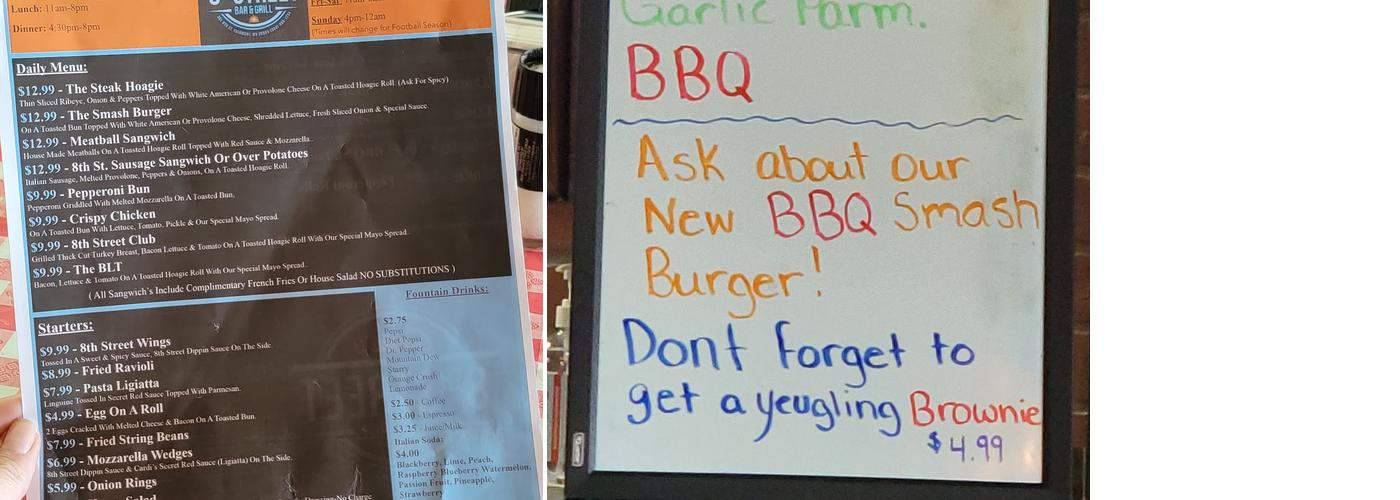 Lunch: 11am-8pm
Dinner: 4:30pm-8pm
BAR & GRILL
Sunday 4pm-12am
(Times will change for Football Season)
Daily Menu:
$12.99 - The Steak Hoagie
Thin Sliced Ribeye, Onion & Peppers Topped With White American Or Provolone Cheese On A Toasted Hoagie Roll. (Ask For Spicy)
$12.99 - The Smash Burger
On A Toasted Bun Topped With White American Or Provolone Cheese, Shredded Lettuce, Fresh Sliced Onion & Special Sauce.
$12.99 - Meatball Sangwich
House Made Meatballs On A Toasted Hoagie Roll Topped With Red Sauce & Mozzarella.
$12.99 - 8th St. Sausage Sangwich Or Over Potatoes
Italian Sausage, Melted Provolone, Peppers & Onions, On A Toasted Hoagie Roll.
$9.99 - Pepperoni Bun
Pepperoni Griddled With Melted Mozzarella On A Toasted Bun.
$9.99 - Crispy Chicken
On A Toasted Bun With Lettuce, Tomato, Pickle & Our Special Mayo Spread.
$9.99 - 8th Street Club
Grilled Thick Cut Turkey Breast, Bacon Lettuce & Tomato On A Toasted Hoagie Roll With Our Special Mayo Spread.
$9.99 - The BLT
Bacon, Lettuce & Tomato On A Toasted Hoagie Roll With Our Special Mayo Spread.
( All Sangwich's Include Complimentary French Fries Or House Salad NO SUBSTITUTIONS )
Starters:
$9.99 - 8th Street Wings
Tossed In A Sweet & Spicy Sauce, 8th Street Dippin Sauce On The Side.
$8.99 - Fried Ravioli
$7.99 - Pasta Ligiatta
Linguine Tossed In Secret Red Sauce Topped With Parmesan.
$4.99 - Egg On A Roll
2 Eggs Cracked With Melted Cheese & Bacon On A Toasted Bun.
$7.99 - Fried String Beans
$6.99 - Mozzarella Wedges
8th Street Dippin Sauce & Cardi's Secret Red Sauce (Ligiatta) On The Side.
$5.99 - Onion Rings
Fountain Drinks:
$2.75
Pepsi
Diet Pepsi
Dr. Pepper
Mountain Dew
Starry
Orange Crush
Lemonade
$2.50 - Coffee
$3.00 - Espresso
$3.25 - Juice/Milk
Italian Soda:
$4.00
Blackberry, Lime, Peach,
Raspberry Blueberry Watermelon,
Passion Fruit, Pineapple,
Strawberry
Garlic Parm.
BBQ
Ask about our
New BBQ Smash
Burger!
Dont forget to
get a yeugling Brownie
$4.99